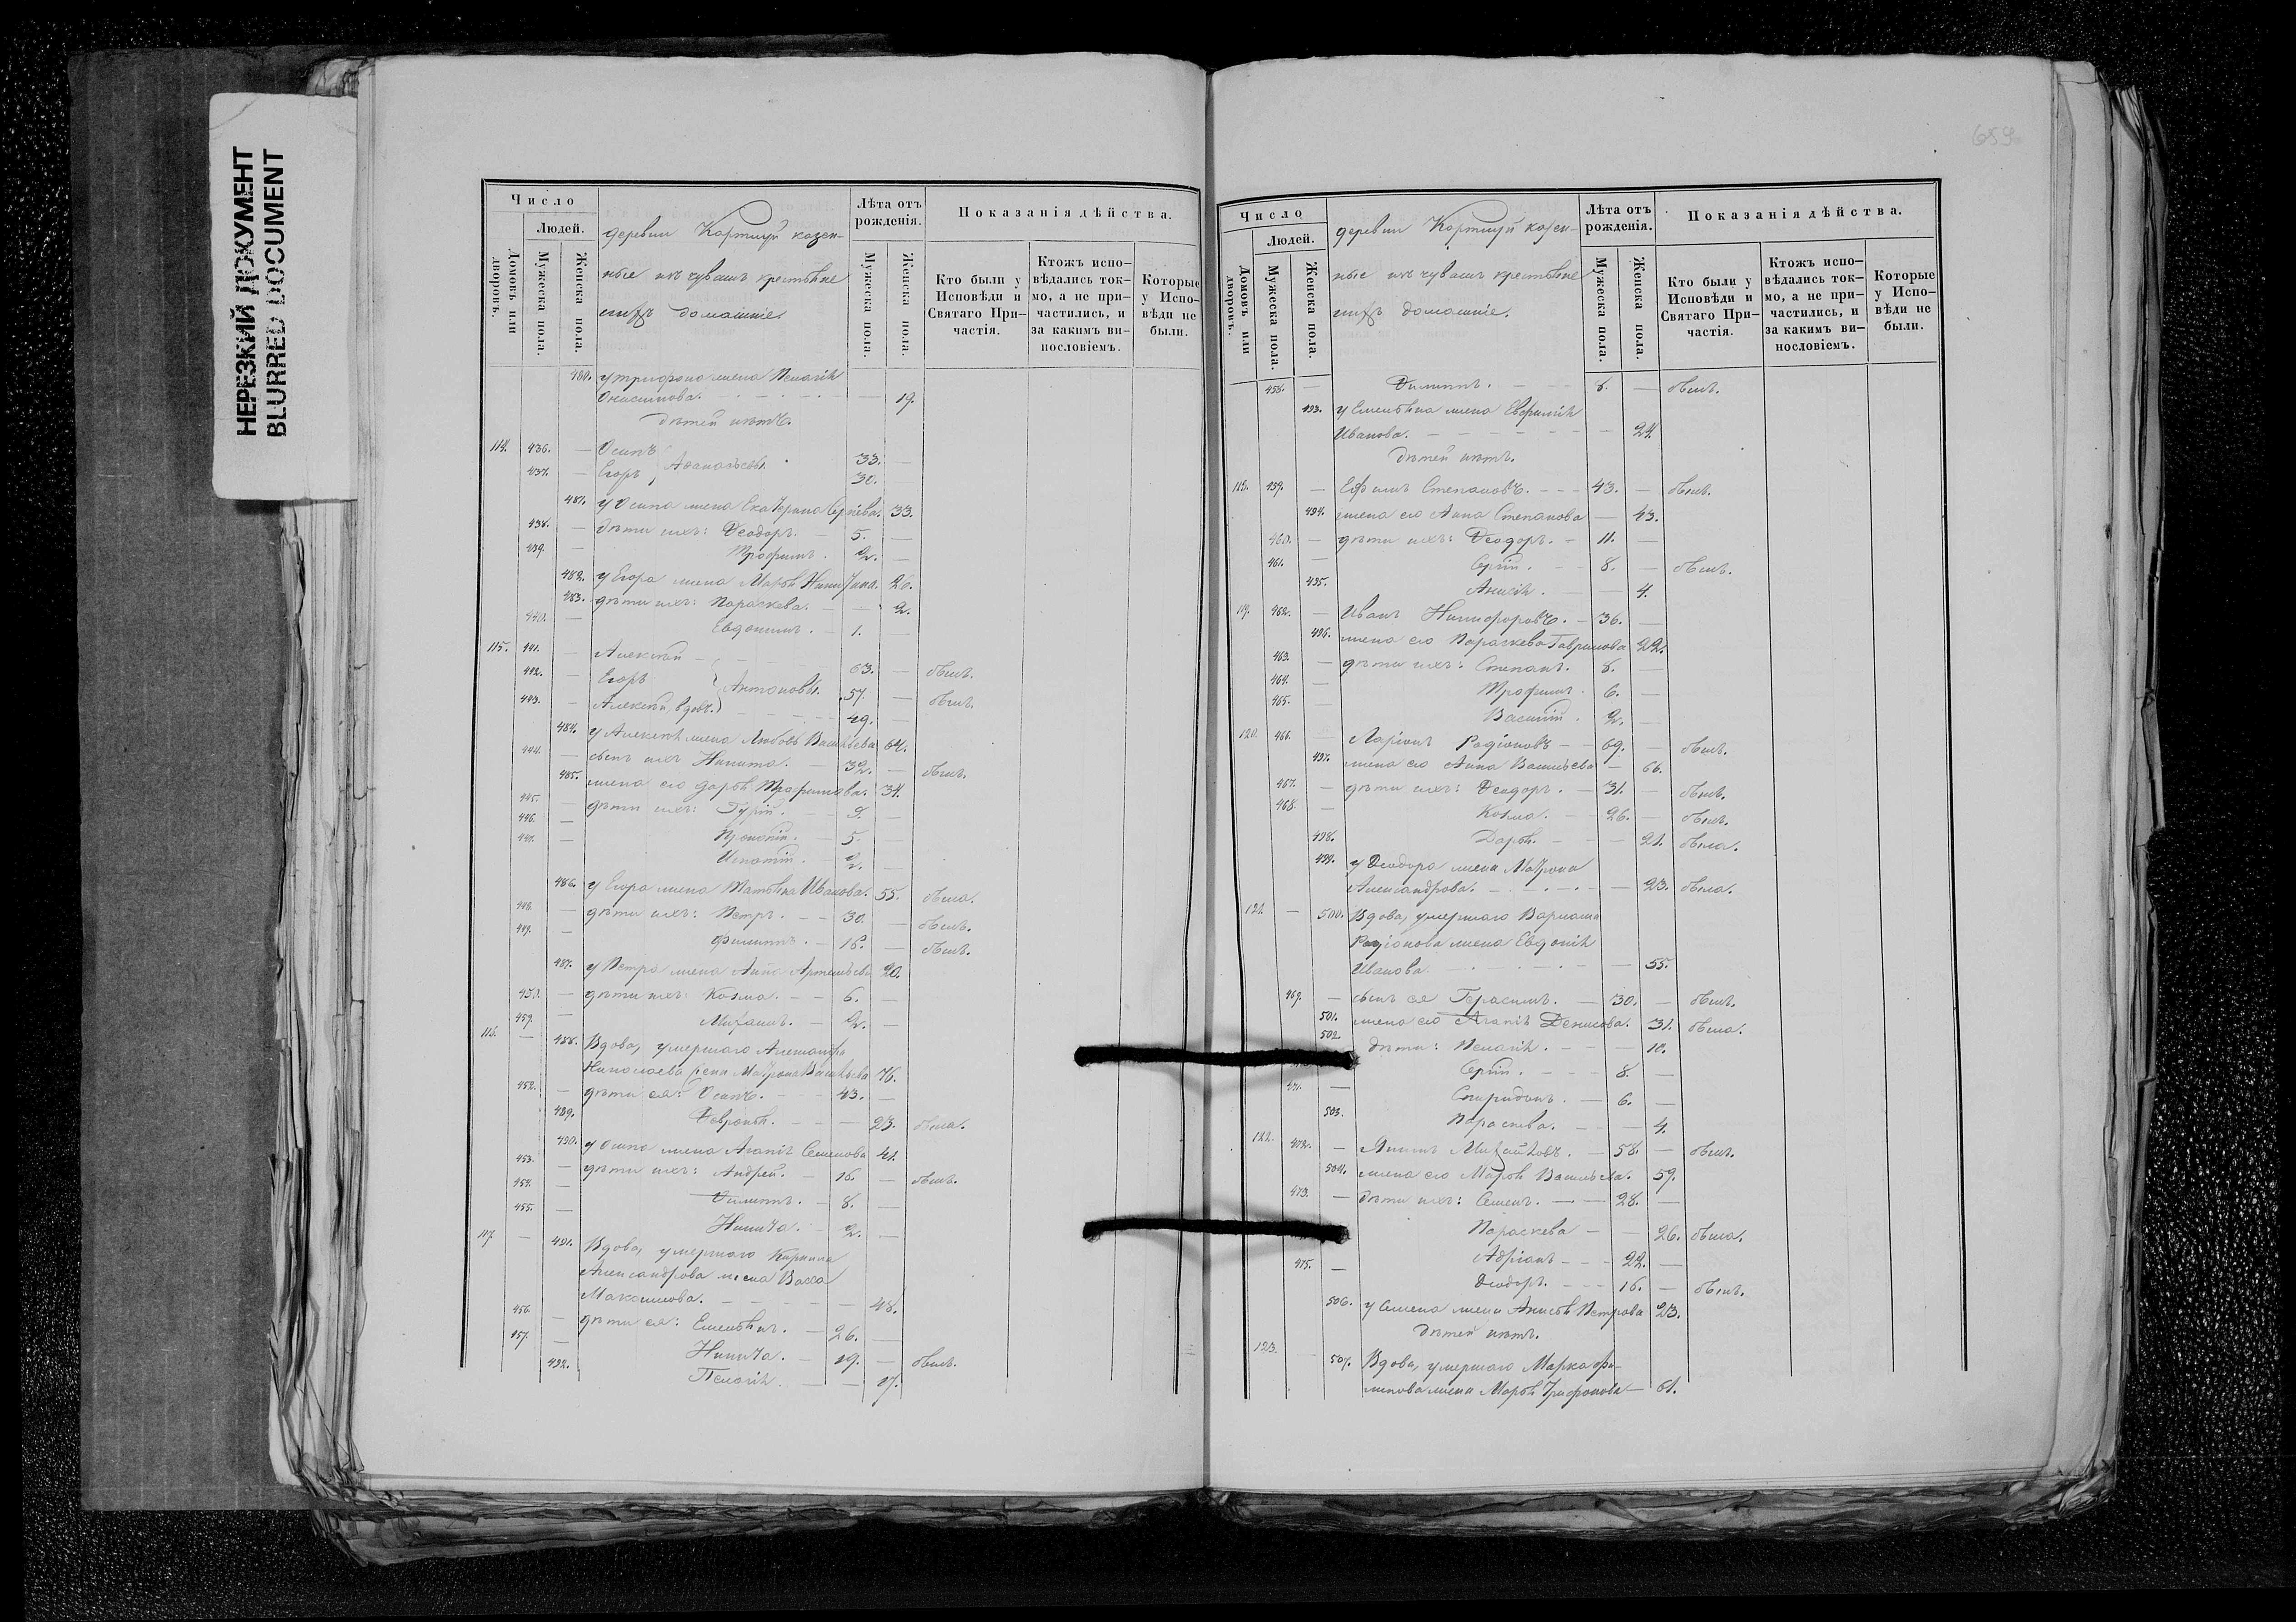 НЕРЕЗКИЙ ДОКУМЕНТ
BLURRED DOCUMENT
Число
Людей.
Домовъ или дворовъ.
Мужеска пола.
Женска пола.
деревни казен-
ные изъ чувашъ крестьяне
домашніе
Лѣта отъ рожденія.
Мужеска пола.
Женска пола.
Показанія дѣйства.
Кто были у Исповѣди и Святаго При-частія.
Ктожъ испо-вѣдались ток-мо, а не при-частились, и за какимъ ви-нословіемъ.
Которые у Испо-вѣди не были.
480. у Трифона жена Пелагія
Онисимова. 19.
дѣтей нѣтъ.
114. 436. — Осипъ 33. —
437. — Егоръ Аѳанасьевы. 30.
481. у Осипа жена Екатерина Сергѣева. 33.
438. — дѣти ихъ: Ѳеодоръ. — 5. —
439. — Трофимъ. 2. —
482. у Егора жена Марья Никитина. 26.
483. дѣти ихъ: Параскева. — 2.
440. — Евдокимъ. — 1.
115. 441. — Алексѣй 63. — былъ.
442. — Егоръ Антоновы. 57. — былъ.
443. — Алексѣй, вдовъ. 49. —
484. у Алексѣя жена Любовь Васильева 64.
444. — сынъ ихъ Никита. — 32. — былъ.
485. жена его Дарья Трофимова. 34.
445. — дѣти ихъ: Гурій. 9. —
446. — Прокопій. 5. —
447. — Игнатій. 2. —
486. у Егора жена Татьяна Иванова. 55. была.
448. — дѣти ихъ: Петръ. — 30. — былъ.
449. — Филиппъ. — 16. — былъ.
487. у Петра жена Анна Артемьева 20.
450. — дѣти ихъ: Козма. — 6. —
459. — Михаилъ. — 2. —
116. — 488. Вдова, умершаго Александра
Николаева жена Матрона Васильева 76.
452. — дѣти ея: Осипъ. — 43. —
489. Ѳевронья. — 23. была.
490. у Осипа жена Агапія Семенова 41.
453. — дѣти ихъ: Андрей. — 16. — былъ.
454. — Филиппъ. — 8. —
455. — Никита. — 2. —
117 — 491. Вдова, умершаго Кирилла
Александрова жена Васса
Максимова. 48.
456. — дѣти ея: Емельянъ. — 26. —
457. — Никита. — 19. — былъ.
492. Пелагія. — 17.
659.
Число
Людей.
Домовъ или дворовъ.
Мужеска пола.
Женска пола.
деревни казен-
ные изъ чувашъ крестьяне
домашніе.
Лѣта отъ рожденія.
Мужеска пола.
Женска пола.
Показанія дѣйства.
Кто были у Исповѣди и Святаго При-частія.
Ктожъ испо-вѣдались ток-мо, а не при-частились, и за какимъ ви-нословіемъ.
Которые у Испо-вѣди не были.
458. — Филиппъ. 8. — былъ.
493. у Емельяна жена Евфимія
Иванова. 24.
дѣтей нѣтъ.
118. 459. — Ефимъ Степановъ. 43. — былъ.
494. жена его Анна Степанова — 43.
460. — дѣти ихъ: Ѳеодоръ. — 11. —
461. — Сергій. 8. — былъ.
495. Анисія. — 4.
119. 462. — Иванъ Никифоровъ. — 36. —
496. жена его Параскева Гаврилова 22.
463. — дѣти ихъ: Степанъ. 8. —
464. — Трофимъ. 6. —
465. — Василій. 2. —
120. 466. — Ларіонъ Родіоновъ — 69. — былъ.
497. жена его Анна Васильева — 66.
467. — дѣти ихъ: Ѳеодоръ. — 31. — былъ.
468. — Козма. — 26. — былъ.
498. Дарья. — 21. была.
499. у Ѳеодора жена Матрона
Александрова. 23. была.
121. — 500. Вдова, умершаго
Родіонова жена Евдокія
Иванова. 55.
469. — сынъ ея Герасимъ. — 30. — былъ.
501. жена его Агапія Денисова. 31. была.
502. дѣти: Пелагія. — 10.
Сергій. — 8. —
471. — Спиридонъ. — 6. —
503. Параскева. — 4.
122. 472. — Михайловъ. — 58. — былъ.
504. жена его Марья Васильева. 59.
473. — дѣти ихъ: Семенъ. — 28. —
Параскева — 26. была.
475. — Адріанъ — 22. —
Ѳеодоръ. 16. — былъ.
506. у Семена жена Анисья Петрова 23.
дѣтей нѣтъ.
123. — 507. Вдова, умершаго Марка Фи-
липова жена Марья Трифонова — 61.